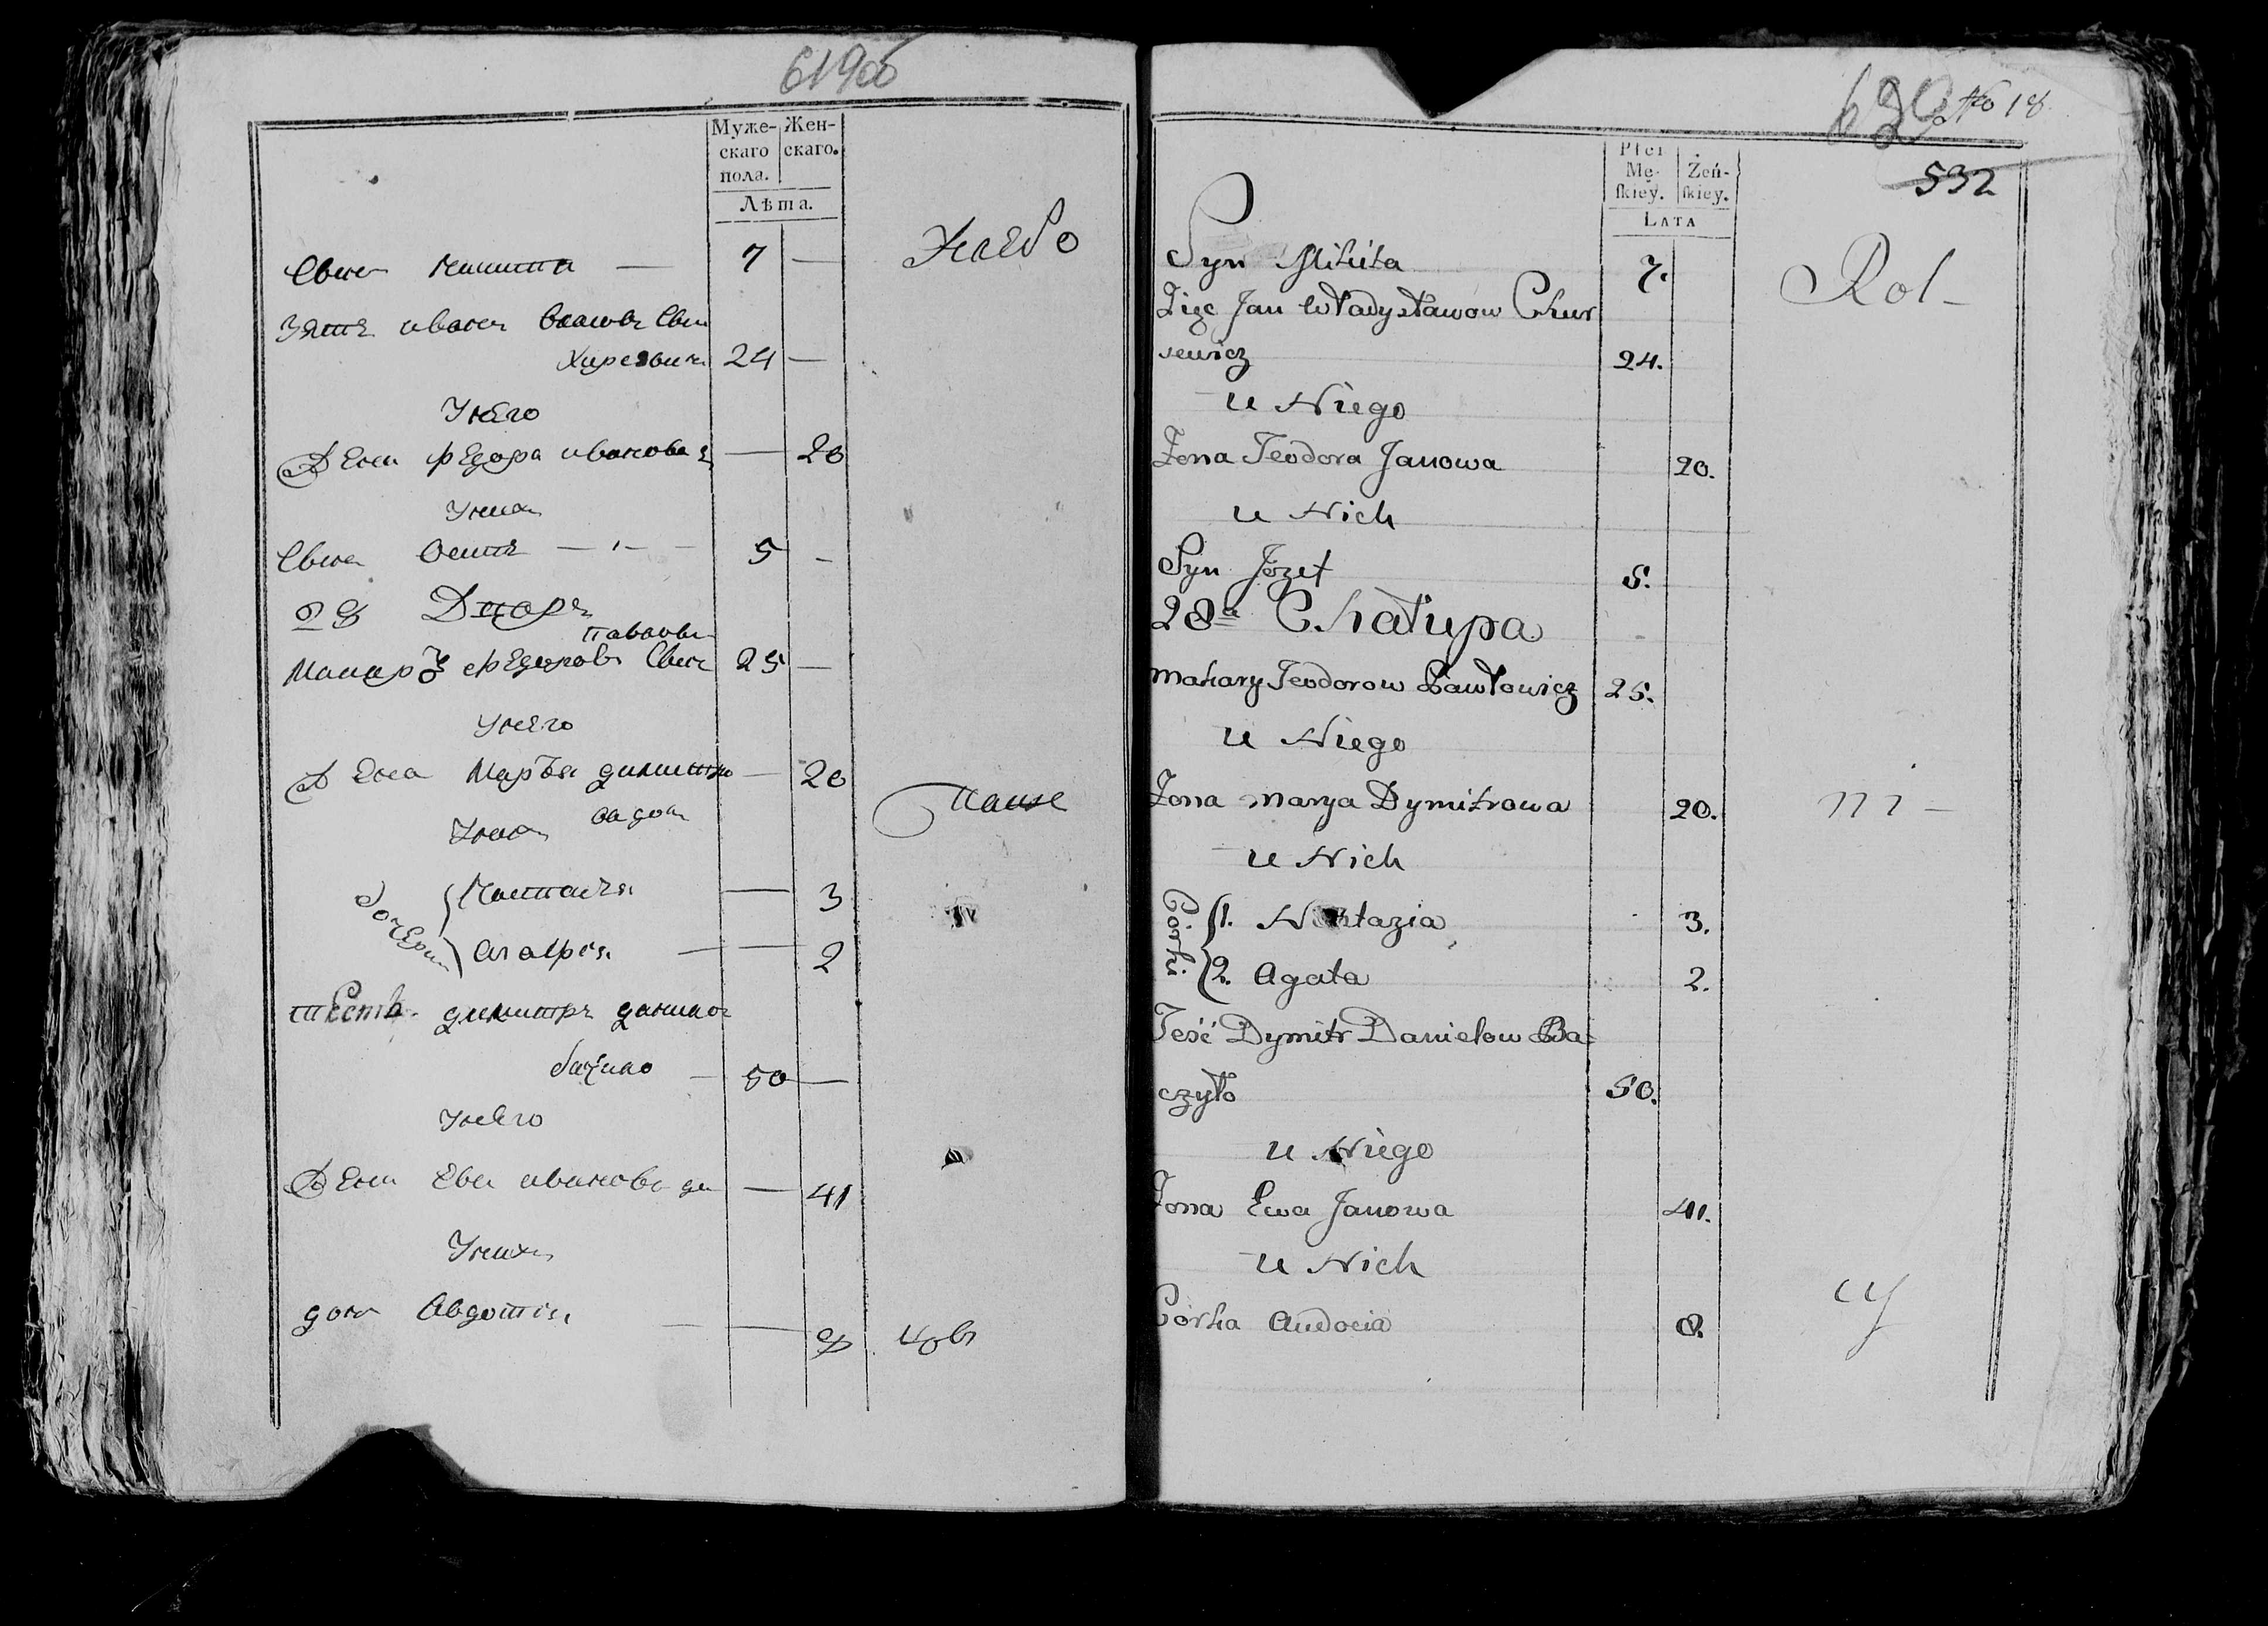 619об
Муже- Жен-
скаго скаго.
пола.
Лѣта.
Сынъ Никита — 7 —
Хлебо
Зять иванъ
24 —
Унего
Жена федора иванова — 20
Унихъ
Сынъ Осипъ — 5 -
28 Дворъ
Макаръ федоровъ 25 —
Унего
Жена Марья димитро — 20
Паше
Унихъ
Дочери Настасья — 3
Агафiя — 2
тесть димитръ данило
бачило — 50 —
Унего
Жена Ева иванова — 41
Унихъ
дочь Авдотiя — 8
цовъ
620 No 18
532
Płci
Mę- Żeń-
ſkiey. ſkiey.
LATA
Syn Mikita 7.
Rol-
Zięć Jan Władysławow Chur
sewicz 24.
u Niego
Żona Teodora Janowa 20.
u Nich
Syn Józef 5.
28a Chałupa
Makary Teodorow Pawłowicz 25.
u Niego
Żona Marya Dymitrowa 20.
ni-
u Nich
Córki 1. Nastazia 3.
2. Agata 2.
Teść Dymitr Danielow Ba-
czyło 50.
u Niego
Żona Ewa Janowa 41.
u Nich
cy
Córka Audocia 8.